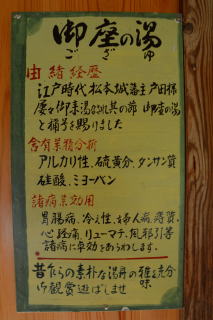 御座の湯
ござゆ
由緒経歴
江戸時代松本城藩主戸田侯
屡々御来湯なされ其の節 御座の湯
と称号を賜りました
含有薬積分析
アルカリ性、硫黄分、タンサン質
硅酸、ミヨーバン
諸病業効用
胃腸病、冷え性、婦人病、痔質、
心経痛、リューマチ、風邪引等
諸病に卓効をあらわします。
昔ながらの素朴な湯舟の雅味を充分
御観賞遊ばしませ